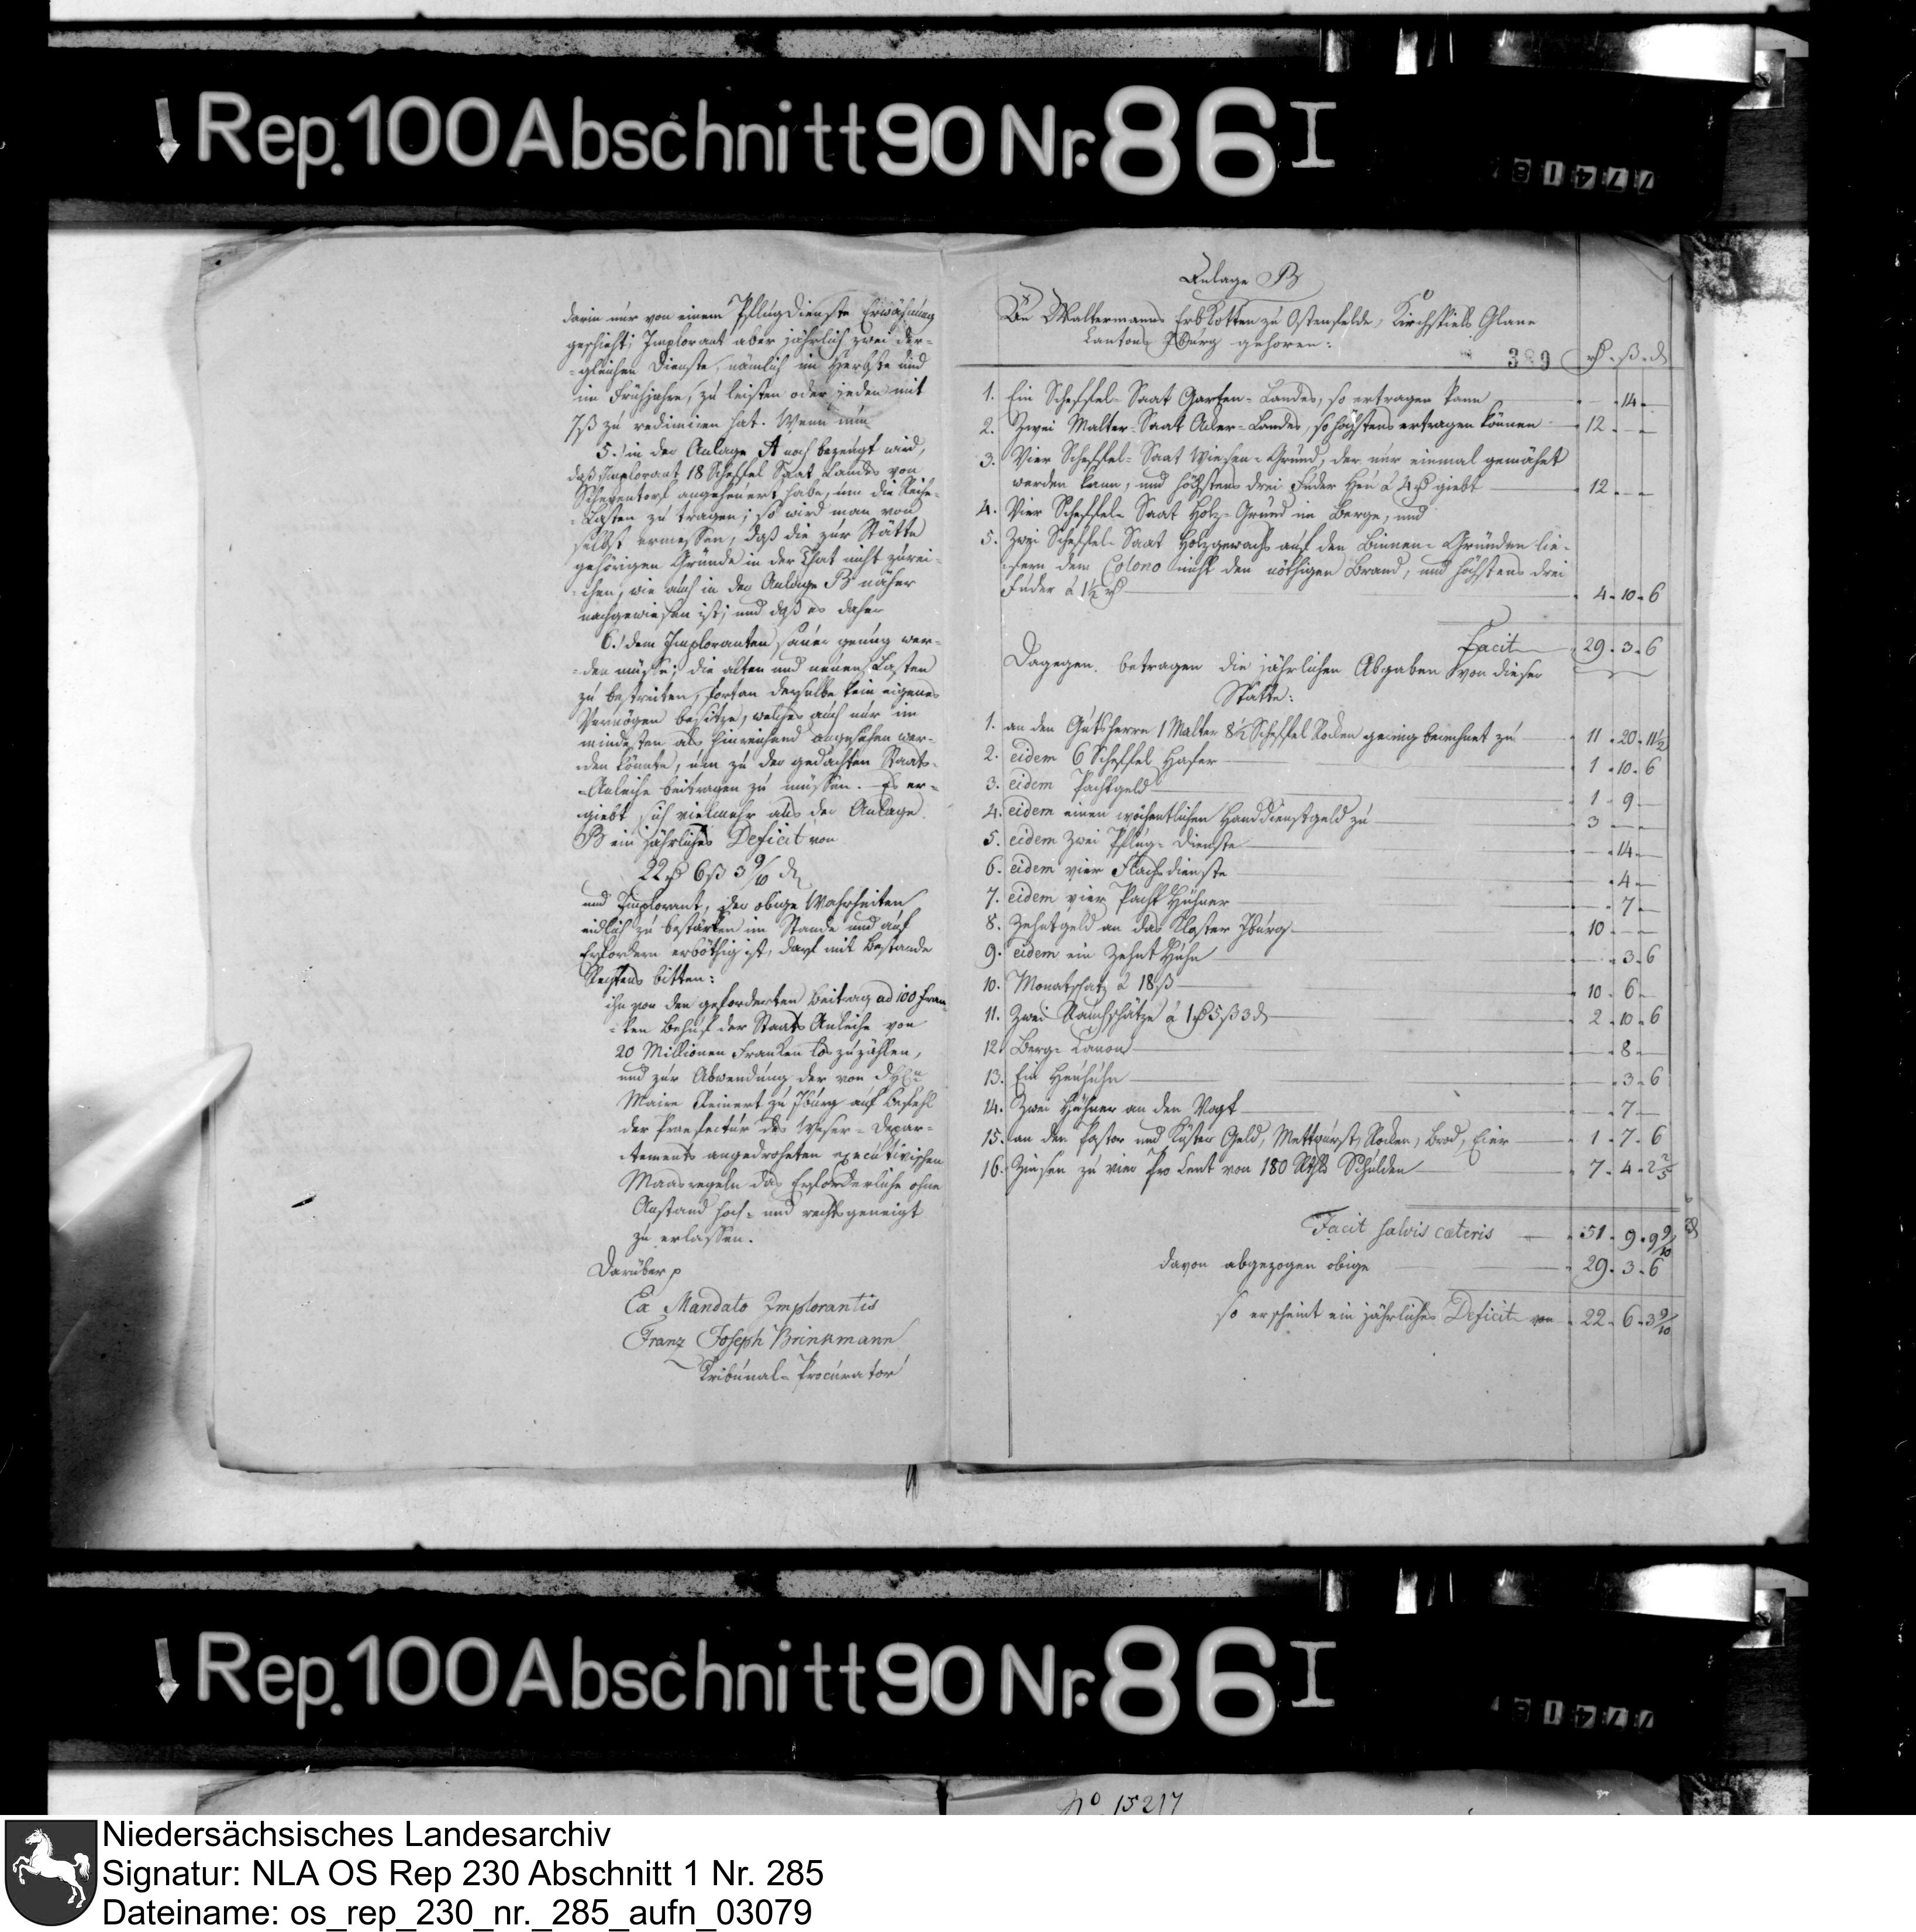 Rep. 100 Abschnitt 90 Nr. 86 I
77418
darin nur von einem Pflugdienste Erwähnung
geschieht; Implorant aber jährlich zwei der-
-gleichen Dienste, nämlich im Herbste und
im Frühjahre, zu leisten oder jeden mit
7 ß zu redimiren hat. Wenn nun
5.) in der Anlage A noch bezeugt wird,
daß Implorant 18 Scheffel Saat Landes von
angeheuert habe, um die Reihe-
-Lasten zu tragen; so wird man von
selbst ermessen, daß die zur Stätte
gehörigen Gründe in der That nicht zurei-
-chen, wie auch in der Anlage B näher
nachgewiesen ist; und daß es daher
6.) dem Imploranten sauer genug wer-
-den müsse; die alten und neuen Lasten
zu bestreiten, fortan derselbe kein eigenes
Vermögen besitze, welches auch nur im
mindesten als hinreichend angesehen wer-
-den könnte, um zu der gedachten Staats-
-Anleihe beitragen zu müssen. Es er-
-giebt sich vielmehr aus der Anlage
B ein jährliches Deficit von
22 rß 6 ß 3 9/10 d
und Implorant, der obige Wahrheiten
eidlich zu bestärken im Stande und auf
Erfordern erböthig ist, darf mit Bestande
Rechtens bitten:
ihn von den geforderten Beitrag ad 100 Fran-
-ken Behuf der Staats Anleihe von
20 Millionen Franken los zu zählen,
und zur Abwendung der von
Maire Reinert zu Iburg auf Befehl
der Praefectur des Weser-Depar-
-tements angedroheten executivischen
Maasregeln das Erforderliche ohne
Anstand hoch- und rechtsgeneigt
zu erlassen.
Darüber p
Ex Mandato Implorantis
Franz Joseph Brinkmann
Tribunal-Procurator
Anlage B
Zu Waltermanns Erbkotten zu Ostenfelde, Kirchspiels Glane
Cantons Iburg gehören:
389 rß . ß . d
1. Ein Scheffel-Saat Garten-Landes, so ertragen kann - 14 -
2. Zwei Malter-Saat Acker-Landes, so höchstens ertragen können 12 - -
3. Vier Scheffel-Saat Wiesen-Grund, der nur einmal gemähet
werden kann, und höchstens drei Fuder Heu à 4 rß giebt 12 - -
4. Vier Scheffel-Saat Holz-Grund im Berge, und
5. Zwei Scheffel-Saat Holzgewachs auf den Binnen-Gründen lie-
-fern dem Colono nicht den nöthigen Brand, und höchstens drei
Fuder à 1½ rß 4 - 10 - 6
Facit 29 . 3 . 6
Dagegen betragen die jährlichen Abgaben von dieser
Stätte:
1. an den Gutsherrn 1 Malter 8½ Scheffel Rocken gering berechnet zu 11 . 20 . 11½
2. eidem 6 Scheffel Hafer 1 . 10 . 6
3. eidem Pachtgeld 1 . 9 -
4. eidem einen wöchentlichen Handdienstgeld zu 3 - -
5. eidem zwei Pflug-Dienste - 14 -
6. eidem vier Flachsdienste - 4 -
7. eidem vier Pacht Hühner - 7 -
8. Zehntgeld an das Kloster Iburg 10 - -
9. eidem ein Zehnt Huhn - 3 . 6
10. Monatschatz à 18 ß 10 . 6 -
11. Zwei Rauchschätze à 1 rß 5 ß 3 d 2 . 10 . 6
12. Berg-Canon - 8 -
13. Ein Heuhuhn - 3 . 6
14. Zwei Hühner an den Vogt - 7 -
15. an den Pastor und Küster Geld, Mettwurst, Rocken, Brod, Eier 1 . 7 . 6
16. Zinsen zu vier Pro Cent von 180 Rthlr Schulden 7 . 4 . 2 2/5
Facit salvis cæteris 51 . 9 . 9 9/10
davon abgezogen obige 29 . 3 . 6
so erscheint ein jährliches Deficit von 22 . 6 . 3 9/10
Rep. 100 Abschnitt 90 Nr. 86 I
77418
No. 15217
Niedersächsisches Landesarchiv
Signatur: NLA OS Rep 230 Abschnitt 1 Nr. 285
Dateiname: os_rep_230_nr._285_aufn_03079